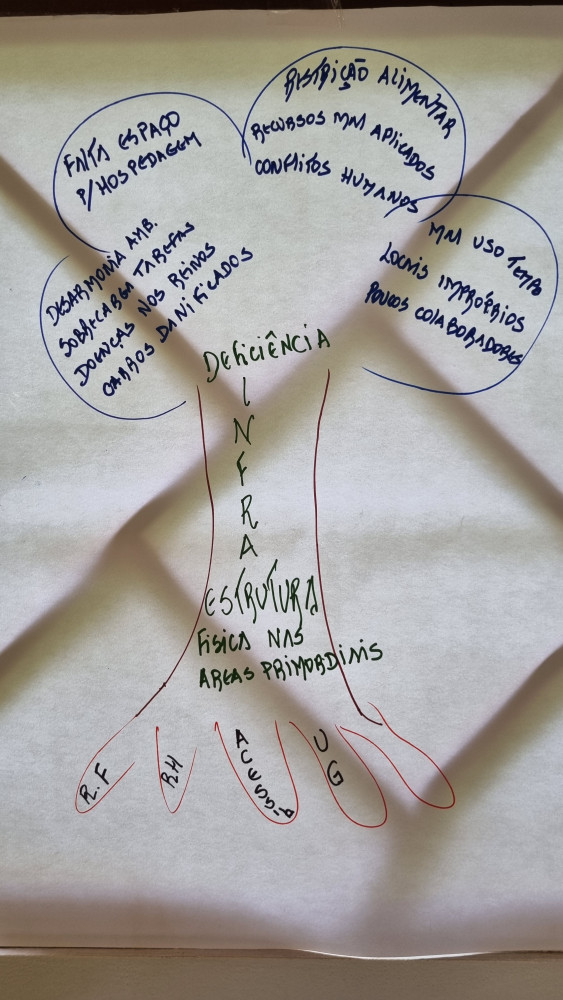 RESTRIÇÃO ALIMENTAR
RECURSOS MAL APLICADOS
CONFLITOS HUMANOS
FALTA ESPAÇO
P/HOSPEDAGEM
DESARMONIA AMB.
SOBRECARGA TAREFAS
DOENÇAS NOS REINOS
CARROS DANIFICADOS
MAL USO TEMPO
LOCAIS IMPRÓPRIOS
POUCOS COLABORADORES
DEFICIÊNCIA
I
N
F
R
A
ESTRUTURA
FISICA NAS
AREAS PRIMORDIAIS
R.F
RH
UG